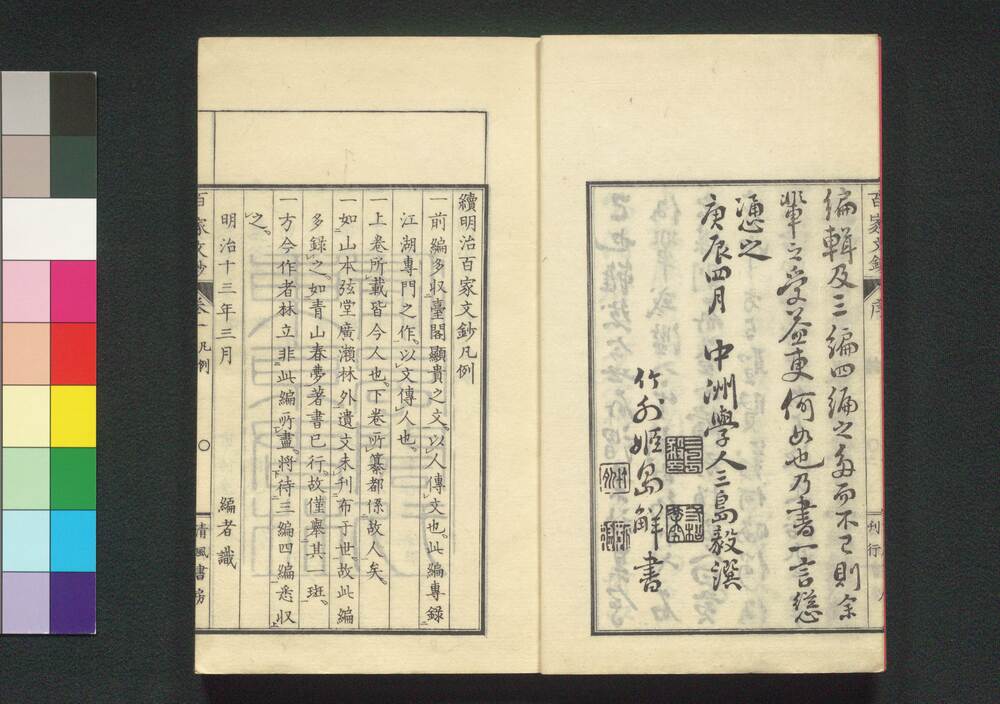 編輯及三編四編之多而不已則余
輩之受益更何如也乃書一言慫
慂之
庚辰四月 中洲學人三島毅譔
竹外姬島鮮書
百家文鈔
序
續明治百家文鈔凡例
一前編多収臺閣顯貴之文。以人傳文也。此編專録
江湖專門之作。以文傳人也。
一上卷所載皆今人也。下卷所纂都係故人矣。
一如山本弦堂廣瀨林外遺文未刊布于世故此編
多録之。如青山春夢著書已行。故僅擧其一班。
一方今作者林立非此編所盡。將待三編四編悉収
之。
明治十三年三月 編者識
百家文鈔 卷一凡例 清風書房